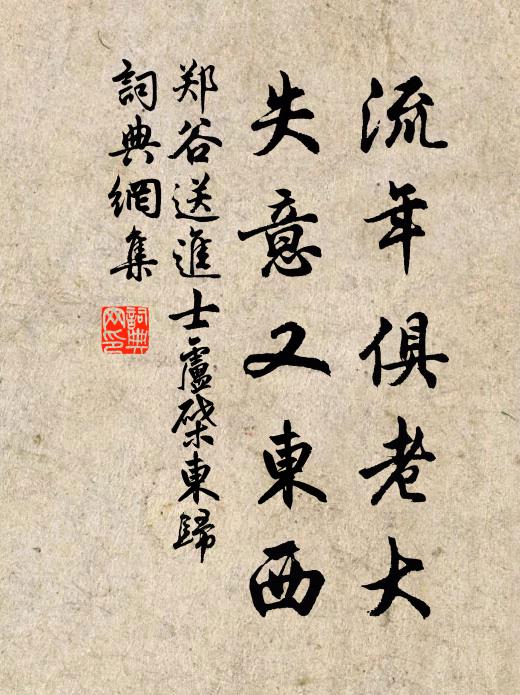 流年俱老大
失意又東西
郑谷送進士盧棨東歸
詞典網集
詞典
网印